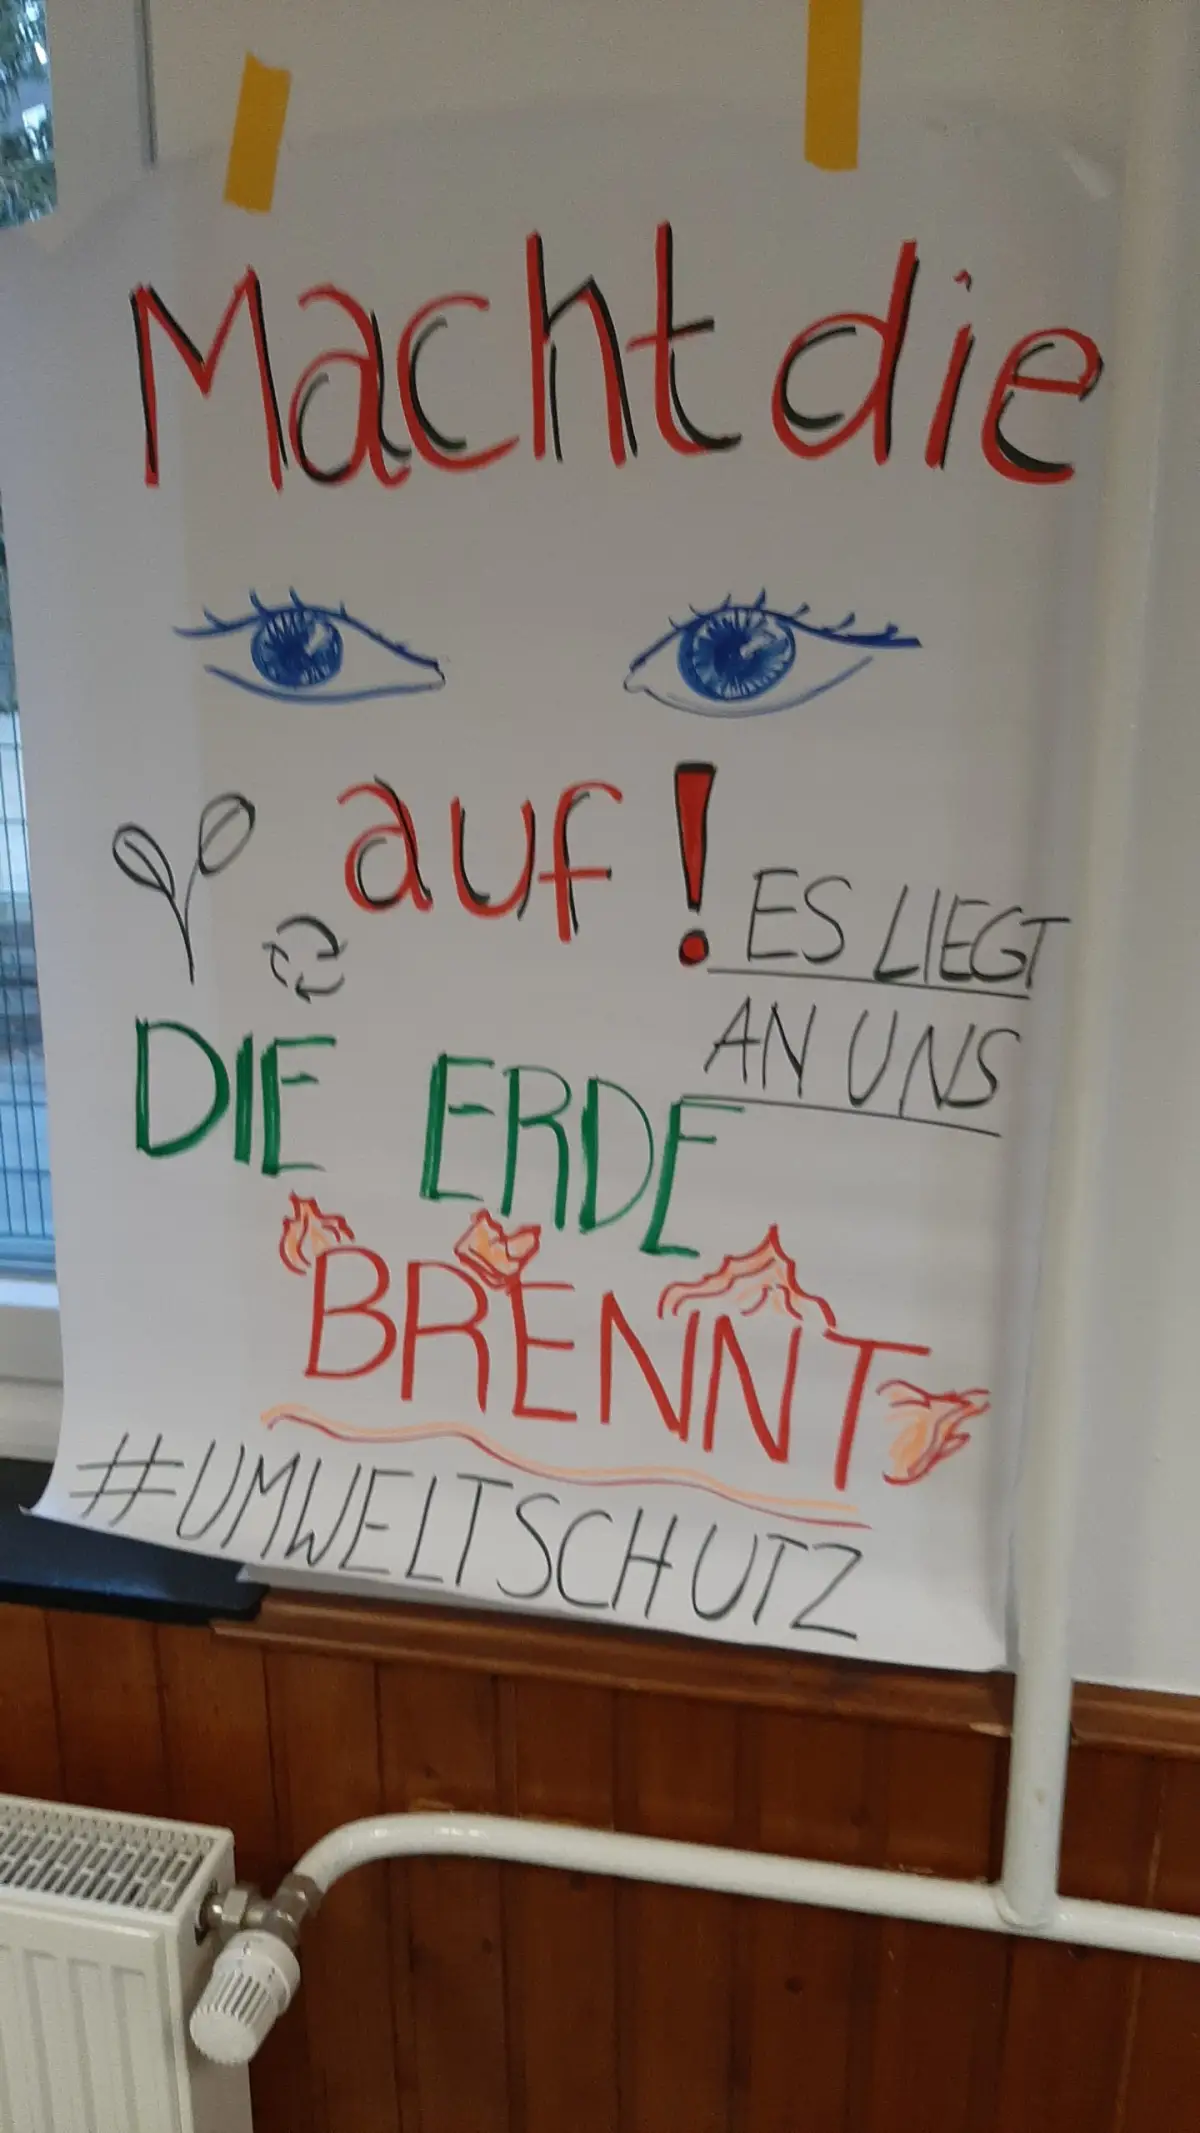 Macht die
auf!
ES LIEGT
AN UNS
DIE ERDE
BRENNT
#UMWELTSCHUTZ